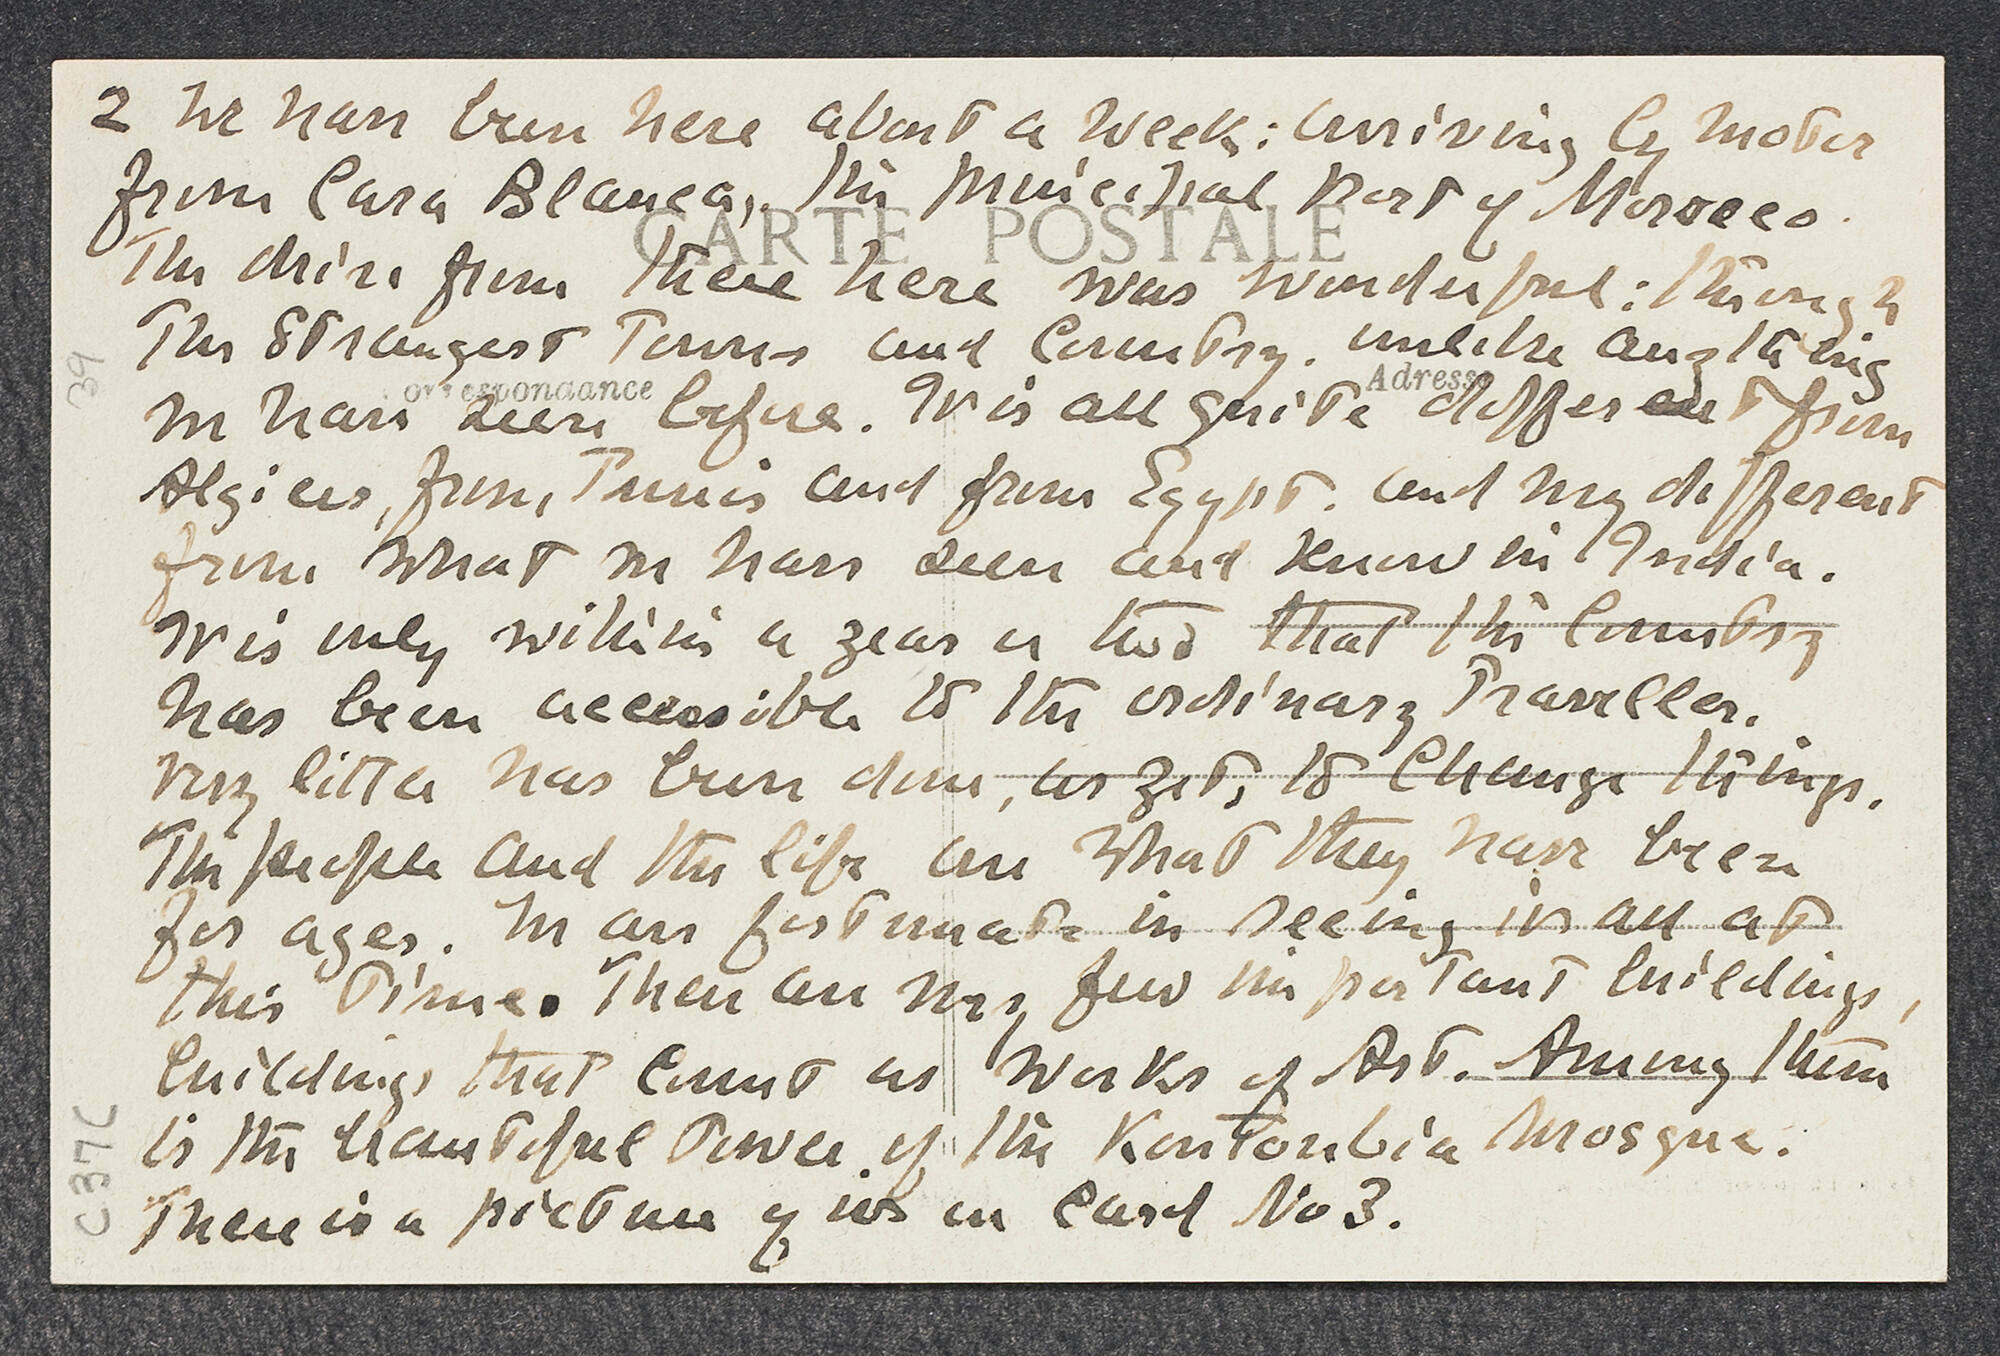 2 We have been here about a week: arriving by motor
from Casa Blanca, the principal port of Morocco.
CARTE POSTALE
The drive from there here was wonderful: through
the strangest towns and country. unlike anything
Correspondance
Adresse
we have seen before. It is all quite different from
Algiers, from Tunis and from Egypt. and very different
from what we have seen and know in India.
It is only within a year or two that the country
has been accessible to the ordinary traveller.
Very little has been done, as yet, to change things.
The people and the life are what they have been
for ages. We are fortunate in seeing it all at
this time. There are very few important buildings,
buildings that count as works of Art. Among them
is the beautiful tower of the Koutoubia Mosque.
There is a picture of it on Card No 3.
39
C37C